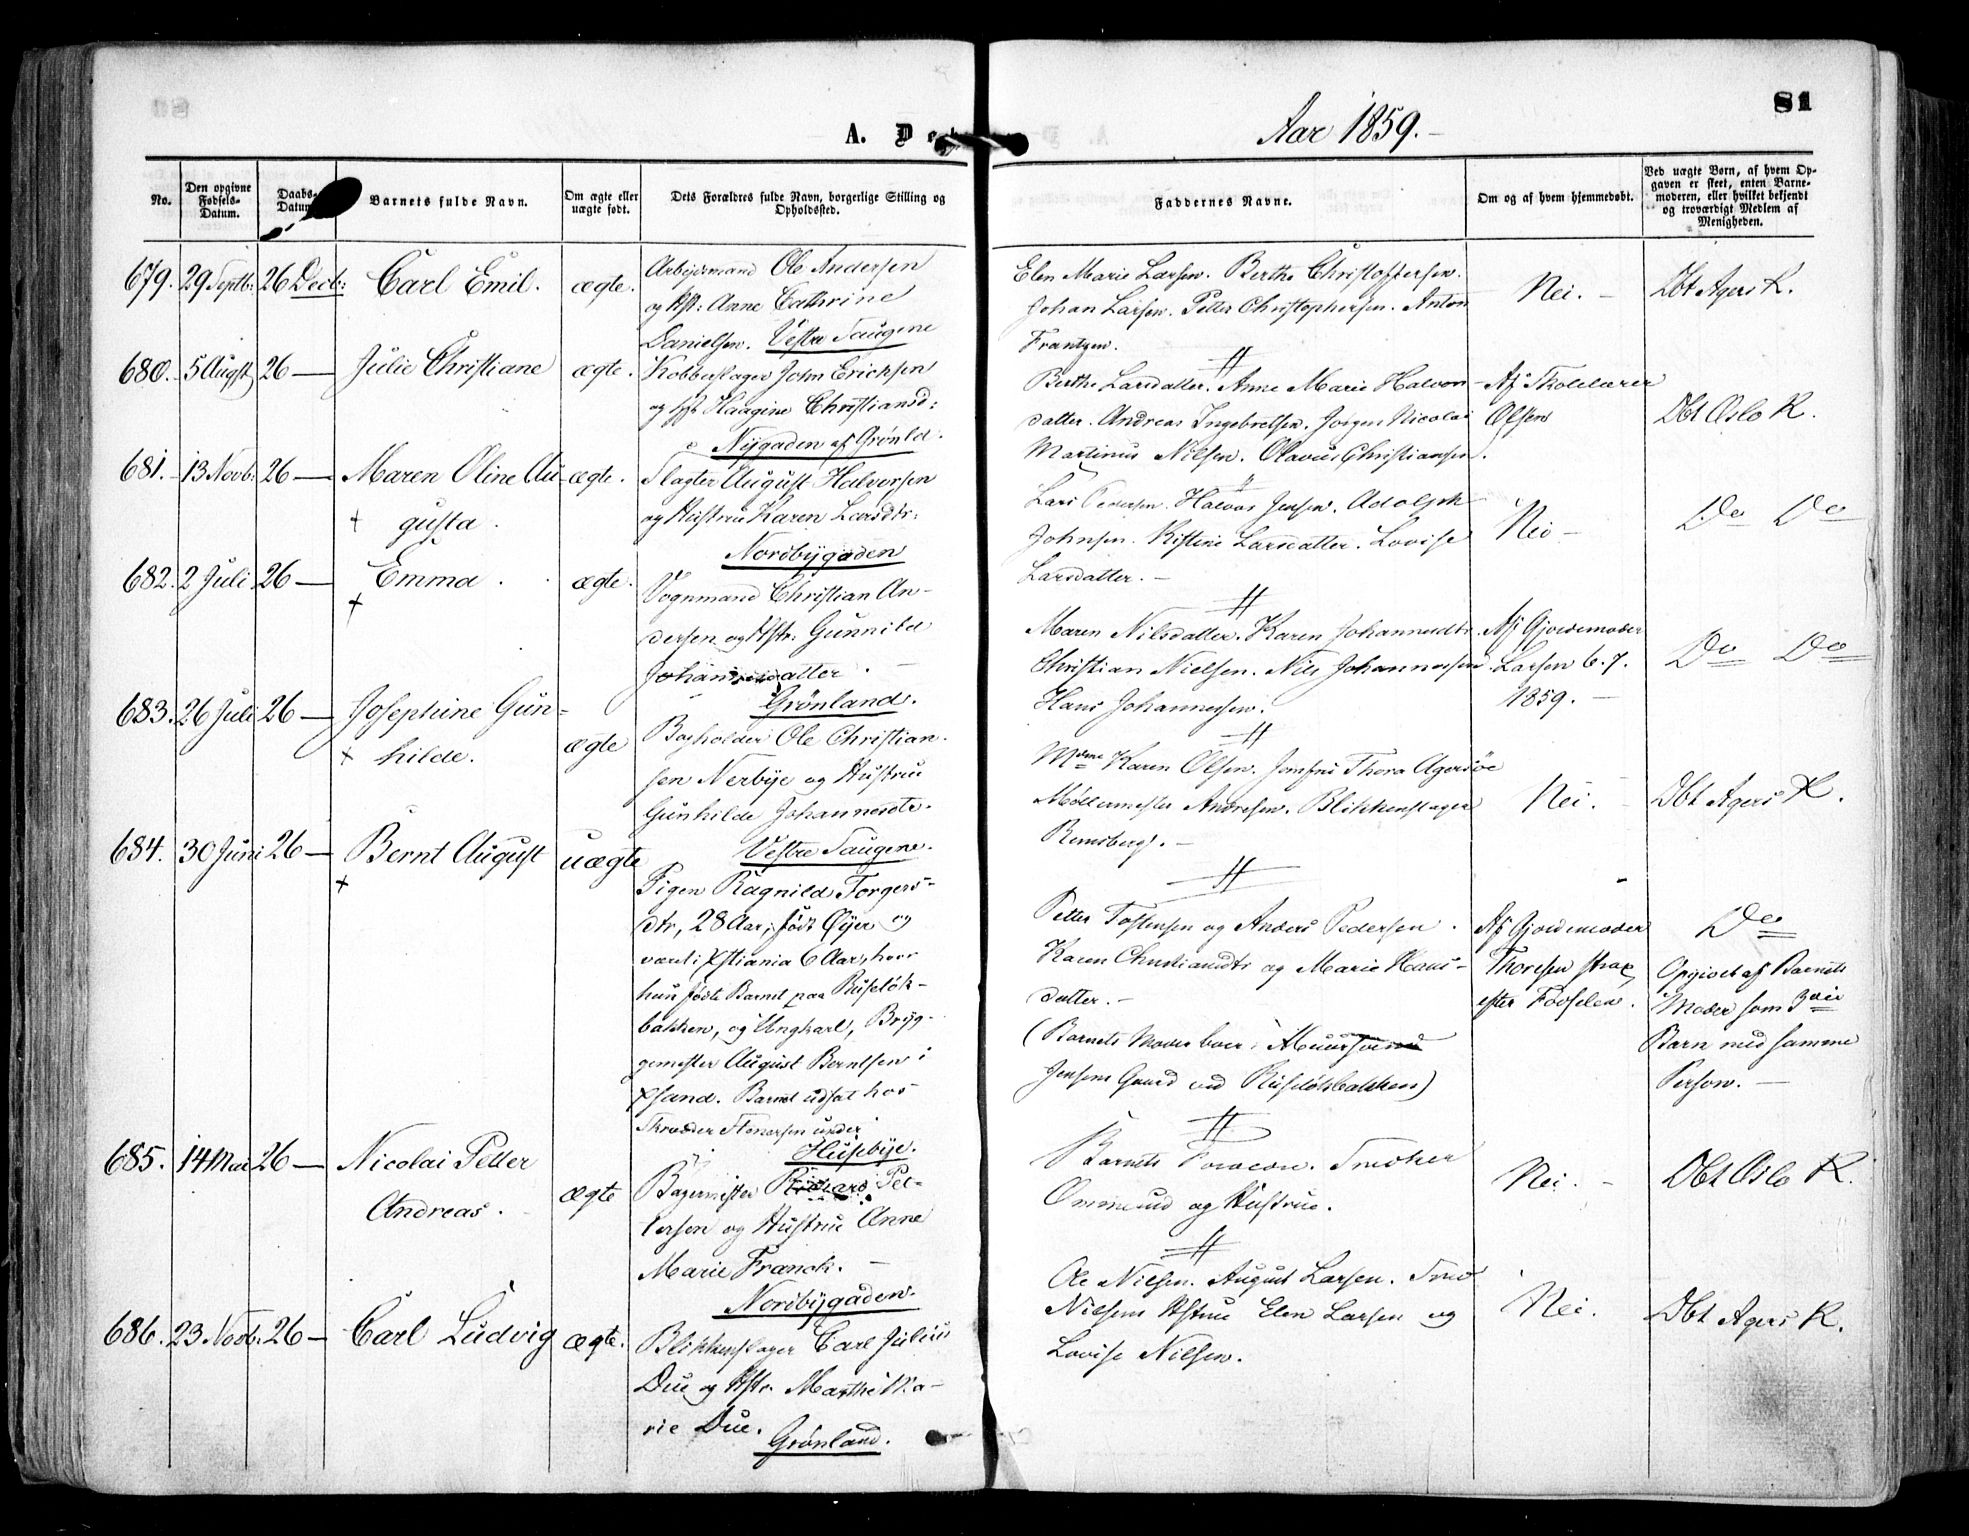 A. D
Aar 1859.
81
No.
Den opgivne Fødsels-Datum.
Daabs-Datum
Barnets fulde Navn.
Om ægte eller uægte født.
Dets Forældres fulde Navn, borgerlige Stilling og Opholdssted.
Faddernes Navne.
Om og af hvem hjemmedøbt.
Ved uægte Børn, af hvem Opgaven er skeet, enten Barnemoderen, eller hvilket bekjendt og troværdigt Medlem af Menigheden.
679. 29 Septb: 26 Decb: Carl Emil. ægte.
Arbejdsmand Ole Andersen
og Hst: Anne Cathrine
Danielsen. Vestre Saugene
Elen Marie Larsen. Berthe Christoffersen.
Johan Larsen. Petter Christophersen. Anton
Frantzen.
Nei. –
Dbt Agers K.
680. 5 Augst 26 — Julie Christiane ægte.
Kobberslager John Ericksen
og Hst Haagine Christiansd:
Nygaden af Grønld.
Berthe Larsdatter. Anne Marie Halvorsdatter. Andreas Ingebretsen. Jørgen Nicolai
Martinus Nilsen. Olavus Christiansen.
Af Skolelærer
Olsen
Dbt Oslo K.
681. 13 Novb: 26 — Maren Oline Augusta. ægte.
Slagter August Halvorsen
og Hustru Karen Larsdtr:
Nordbygaden
Lars Pedersen. Halvor Jensen. Adolph
Johnsen. Kistine Larsdatter. Lovise
Larsdatter. –
Nei –
Do Do
682. 2 Juli 26 — Emma. ægte.
Vognmand Christian Andersen og Hstr: Gunnild
Johannesdatter.
Grønland.
Maren Nilsdatter. Karen Johannesdtr.
Christian Nielsen. Nils Johannessen
Hans Johannessen.
Af Gjordemoder
Larsen 6. 7.
1859. –
Do Do
683. 26 Juli 26 — Josephine Gunhilde. ægte
Bogholder Ole Christiansen Nerbye og Hustru
Gunhilde Johannesdtr.
Vestre Saugene.
Mdme Karen Olsen. Jomfru Thora Agersøe
Møllermester Andresen. Blikkenslager
Ramsberg. –
Nei. –
Dbt Agers K.
684. 30 Juni 26 — Bernt August uægte
Pigen Ragnild Torgersdtr, 28 Aar, født Øyer og
været i Xstiania 6 Aar, hvor
hun fødte Barnet paa Ruseløkbakken, og Ungkarl, Bryggemester August Berntsen i
Xsand. Barnet udsat hos
Skræder Stenersen under
Husebye.
Petter Tostensen og Anders Pedersen.
Karen Christiansdtr og Marie Hansdatter. –
(Barnets Moder boer i Muursvend
Jensens Gaard ved Ruseløkbakken)
Af Gjordemoder
Thoresen strax
efter Fødselen.
Do
Opgivet af Barnets
Moder som 3die
Barn med samme
Person. –
685. 14 Mai 26 — Nicolai Petter
Andreas. ægte
Bagermester Richard Pettersen og Hustru Anne
Marie Franck. –
Nordbygaden.
Barnets Forældre. Snedker
Ommund og Hustrue.
Nei. –
Dbt Oslo K.
686. 23 Novb. 26 — Carl Ludvig ægte.
Blikkenslager Carl Julius
Due og Hstr. Marthe Marie Due.
Grønland.
Ole Nielsen. August Larsen.
Nielsens Hstrue Elen Larsen og
Lovise Nielsen.
Nei.
Dbt Agers K.